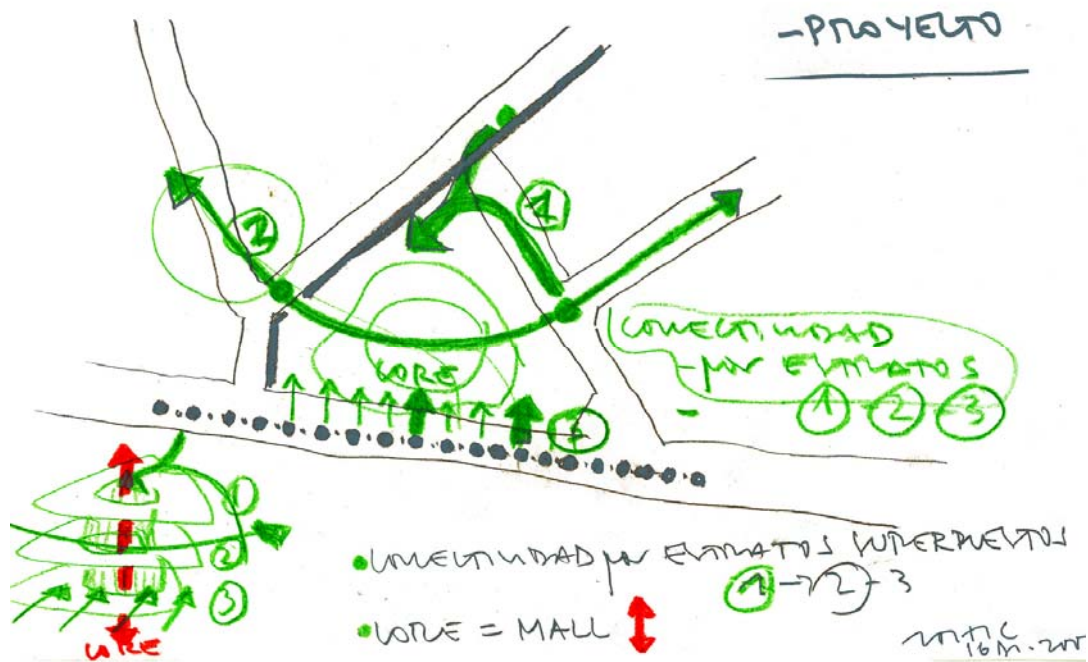 -PROYECTO
2
1
CONECTIVIDAD
-por ESTRATOS
1-2-3
CORE
1
2
3
CORE
•CONECTIVIDAD por ESTRATOS SUPERPUESTOS
1→2-3
•CORE = MALL